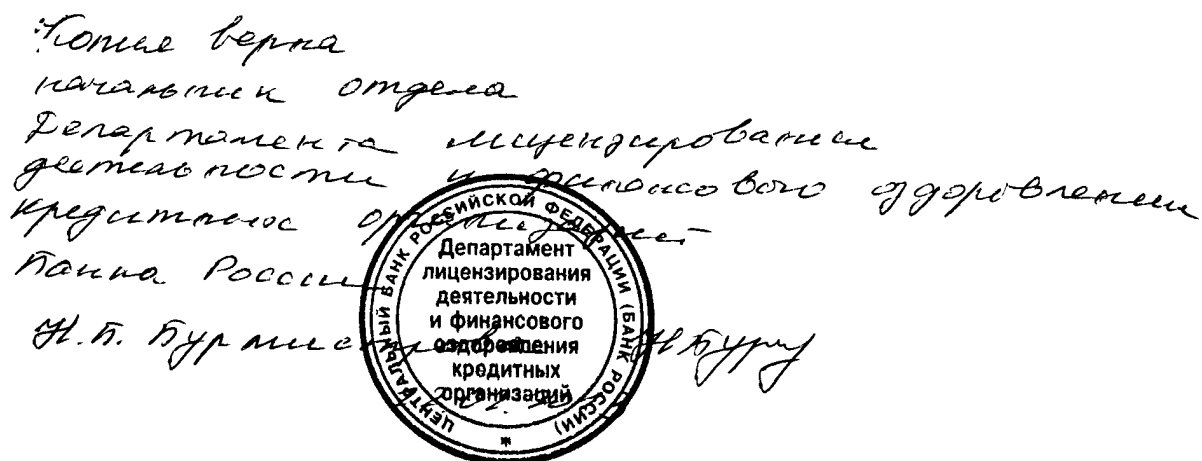 Копия верна
начальник отдела
Департамента лицензирования
деятельности и финансового оздоровления
кредитных организаций
Банка России
Н.П. Бурмистрова
ЦЕНТРАЛЬНЫЙ БАНК РОССИЙСКОЙ ФЕДЕРАЦИИ (БАНК РОССИИ)
Департамент
лицензирования
деятельности
и финансового
оздоровления
кредитных
организаций
*